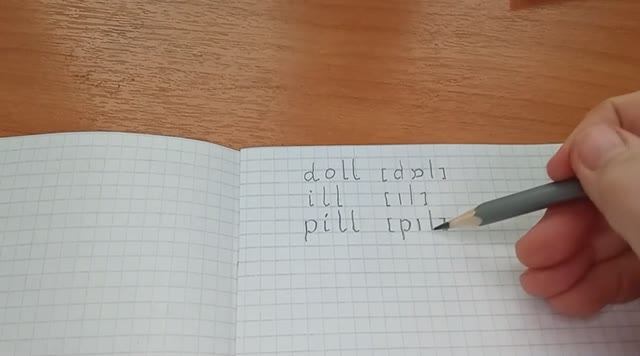 doll [dɒl]
ill [ɪl]
pill [pɪl]